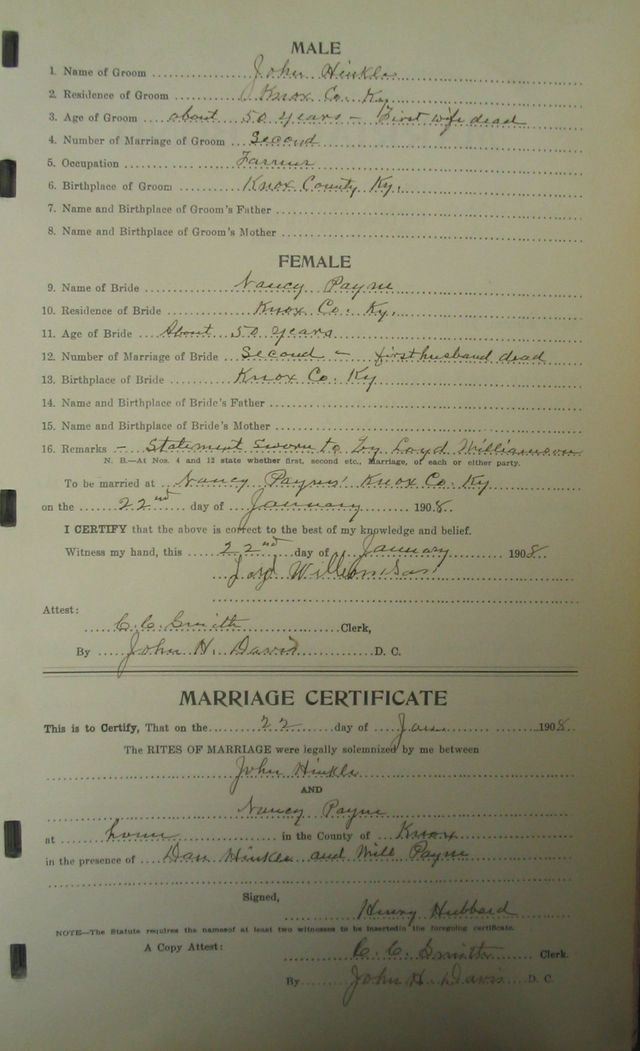 MALE
1. Name of Groom John Hinkle
2. Residence of Groom Knox Co. Ky.
3. Age of Groom about 50 years – First wife dead
4. Number of Marriage of Groom Second
5. Occupation Farmer
6. Birthplace of Groom Knox County Ky.
7. Name and Birthplace of Groom's Father
8. Name and Birthplace of Groom's Mother
FEMALE
9. Name of Bride Nancy Payne
10. Residence of Bride Knox Co. Ky.
11. Age of Bride About 50 years
12. Number of Marriage of Bride Second – first husband dead
13. Birthplace of Bride Knox Co. Ky
14. Name and Birthplace of Bride's Father
15. Name and Birthplace of Bride's Mother
16. Remarks – Statement sworn to by Loyd Williamson
N. B.—At Nos. 4 and 12 state whether first, second etc., Marriage, of each or either party.
To be married at Nancy Paynes' Knox Co. Ky
on the 22nd day of January 1908.
I CERTIFY that the above is correct to the best of my knowledge and belief.
Witness my hand, this 22nd day of January 1908
Loyd Williamson
Attest:
C. C. Smith Clerk,
By John H. Davis D. C.
MARRIAGE CERTIFICATE
This is to Certify, That on the 22 day of Jan 1908.
The RITES OF MARRIAGE were legally solemnized by me between
John Hinkle
AND
Nancy Payne
at home in the County of Knox
in the presence of Dan Hinkle and Will Payne
Signed,
Henry Hubbard
NOTE—The Statute requires the namesof at least two witnesses to be insertedin the foregoing certificate.
A Copy Attest: C. C. Smith Clerk.
By John H. Davis D. C.